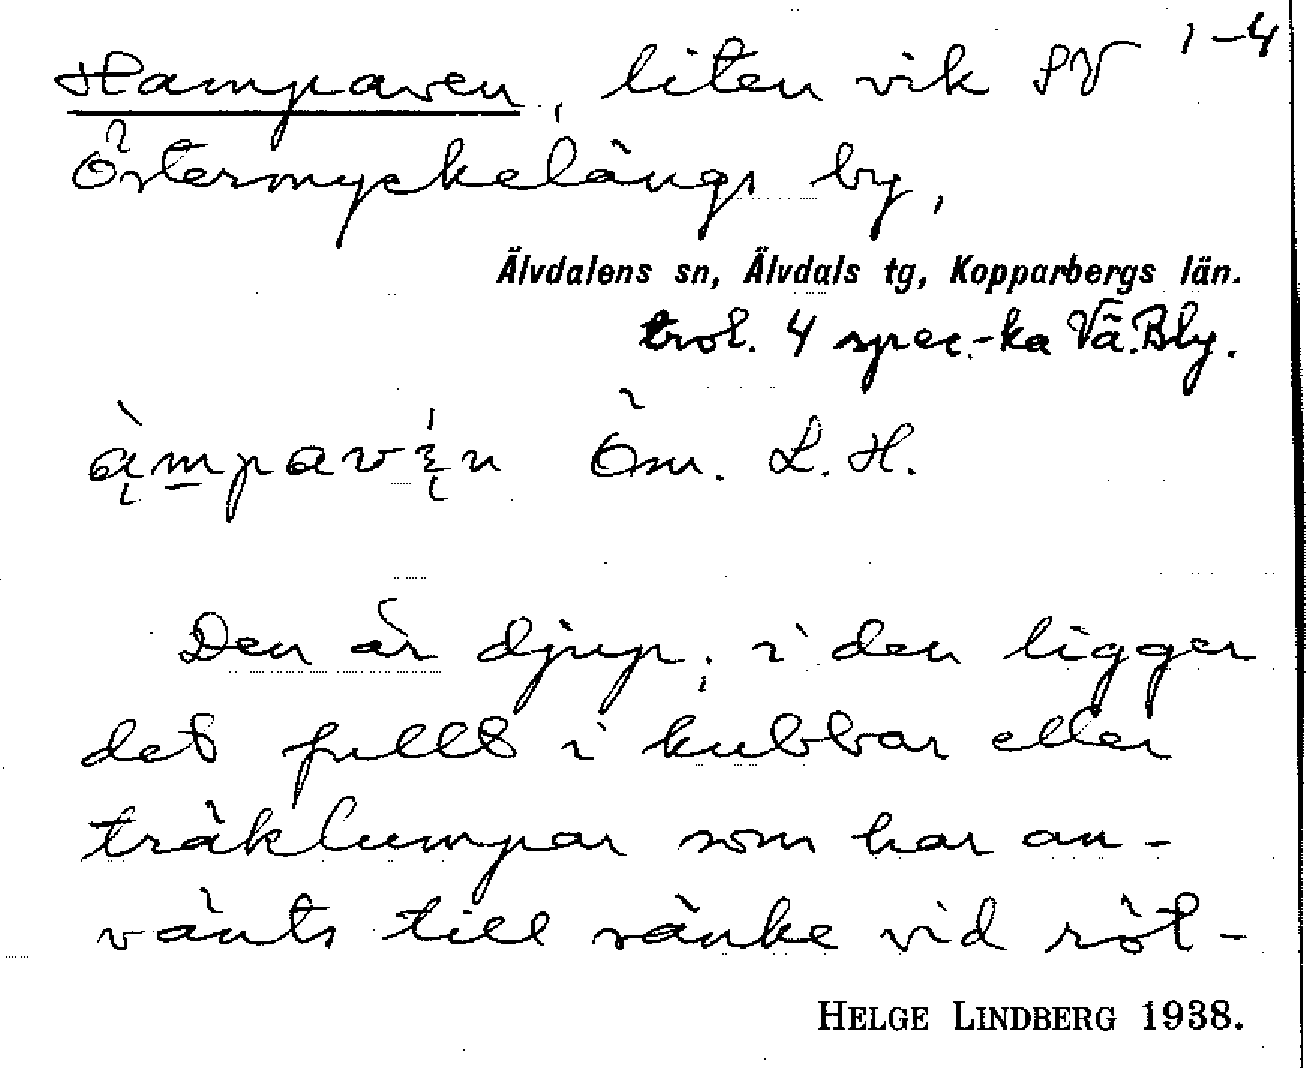 Hampaven, liten vik SV 1-4
Östermyckelängs by,
Älvdalens sn, Älvdals tg, Kopparbergs län.
trol. 4 spec.-ka Vä.Bly.
àmpavẹn Öm. L. H.
Den är djup; i den ligger
det fullt i kubbar eller
träklumpar som har an-
vänts till sänke vid röt-
HELGE LINDBERG 1938.